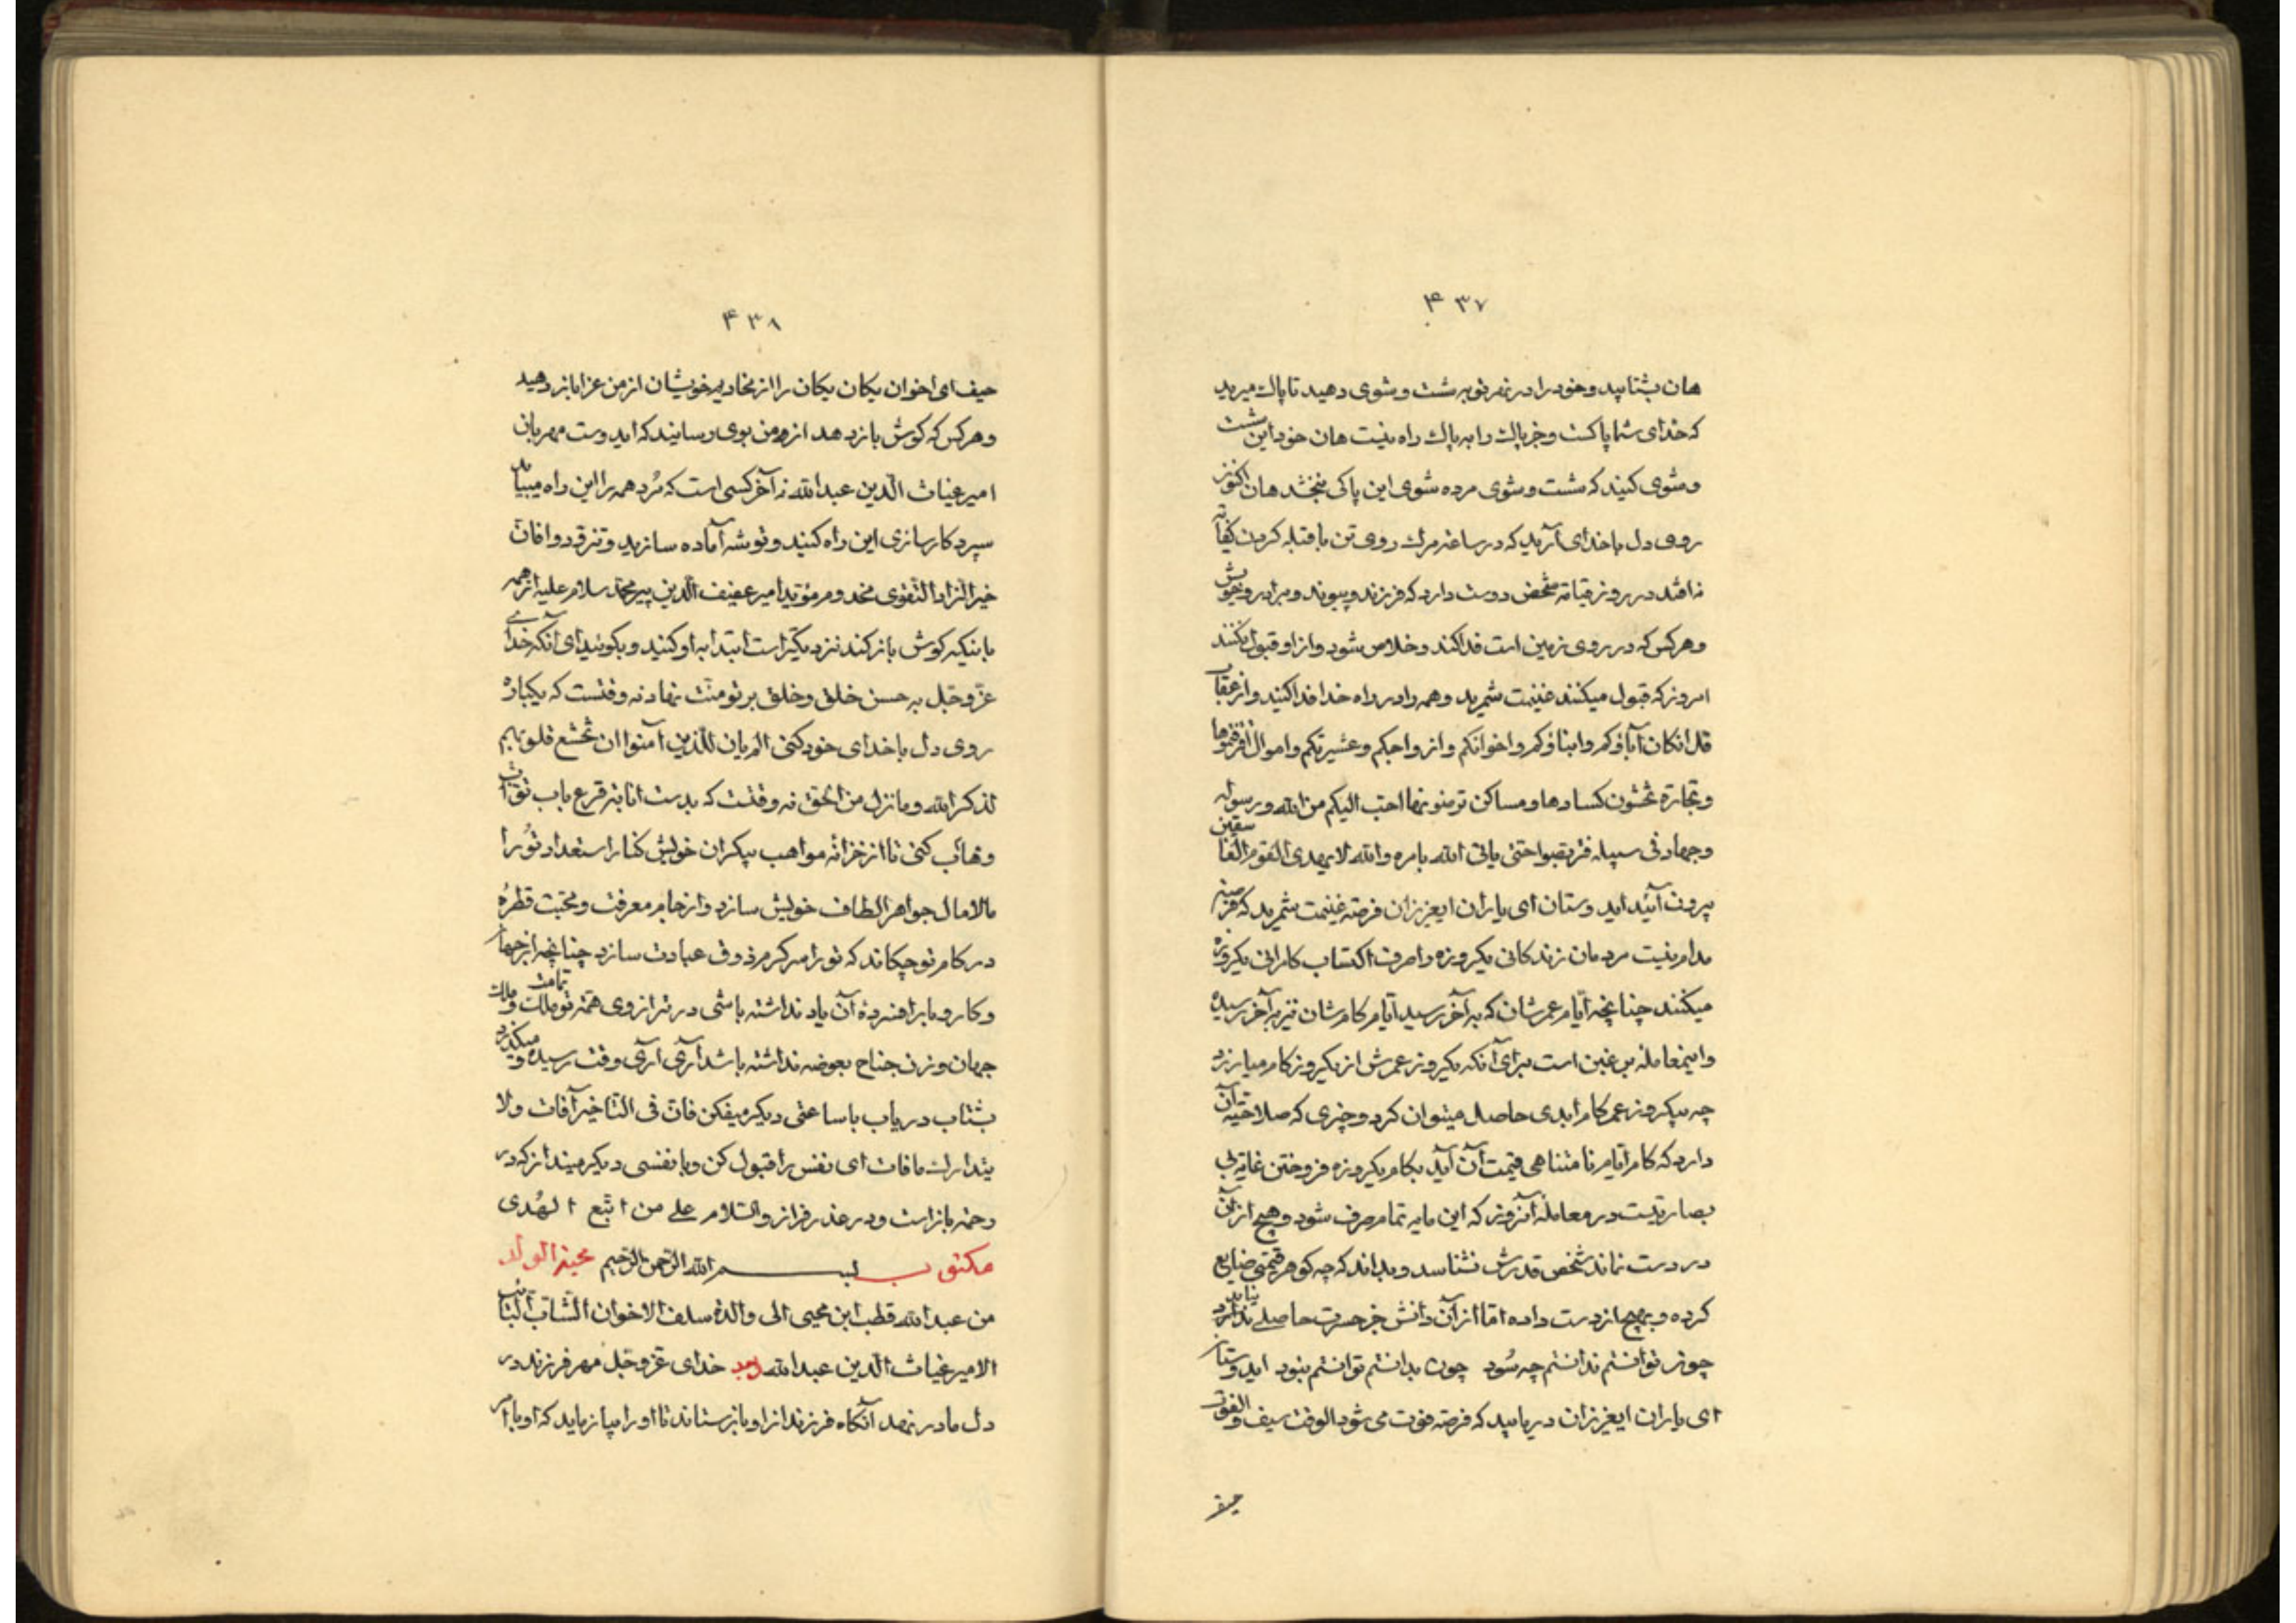 ۴۳۷
هان بشتابید و خود را در نهر توبه شست و شوی دهید تا پاک میرید
که خدای شما پاکست و جز پاک را به پاک راه نیست هان خود این شست
و شوی کنید که شست و شوی مرده شوی این پاکی نبخشد هان اکنون
روی دل با خدای آرید که در ساعة مرک روی تن با قبله کردن کفایة
نافتد در روز قیامة شخص دوست دارد که فرزند و پیوند و برادر و خویش
و هر کس که در روی زمین است فدا کند و خلاص شود و از او قبول نکنند
امروز که قبول میکنند غنیمت شمرید و همه را در راه خدا فدا کنید و از عقاب
قل انکان آباؤکم و ابناؤکم و اخوانکم و ازواجکم و عشیرتکم و اموال اقترفتموها
و تجارة تخشون کسادها و مساکن ترضونها احب الیکم من الله و رسوله
و جهاد فی سبیله فتربصوا حتی یاتی الله بامره والله لا یهدی القوم الفاسقین
بیرون آئید ایدوستان ای یاران ایعزیزان فرصة غنیمت شمرید که فرصة
مدام نیست مردمان زندکانی یکروزه را صرف اکتساب کامرانی یکروزه
میکنند چنانچه ایام عمرشان که به آخر رسید ایام کامشان نیز به آخر رسیده
و اینمعامله بس غبن است برای آنکه یکروز عمرش از یکروز کام میارزد
چه بیکروز عمر کام ابدی حاصل میتوان کرد و چیزی که صلاحیة آن
دارد که کام ایام نامتناهی قیمت آن آید بکام یکروزه فروختن غایة بی
بصارتیست در معامله آنروز که این مایه تمام صرف شود و هیچ از آن
در دست نماند شخص قدرش نشناسد و بداند که چه کوهر قیمتی ضایع
کرده و بهیچ از دست داده اما از آن دانش جز حسرت حاصلے ندارد
چون توانستم ندانستم چه سُود چون بدانستم توانستم نبود ایدوستان
ای یاران ایعزیزان دریابید که فرصة فوت می شود الوقت سیف و الفوت
حیف
۴۳۸
حیف ای اخوان یکان یکان را از مخادیم خویشان از من عزا باز دهید
و هر کس که کوش باز دهد از من بوی رسانید که ایدوست مهربان
امیر غیاث الدین عبدالله نه آخر کسی است که مُرد همه را این راه میباید
سپرد کارسازی این راه کنید و توشه آماده سازید و تزوّدوا فان
خیر الزاد التقوی مخدوم مؤید امیر عفیف الدین پیرمحمد سلام علیه از همه
بانیکه کوش باز کند نزدیکتر است ابتدا به او کنید و بکوئید ای آنکه خدای
عزّ و جّل به حسن خلق و خلق بر تو منّت نهاد نه وقتست که یکباره
روی دل با خدای خود کنی الم یان للذین آمنوا ان تخشع قلوبهم
لذکر الله و ما نزل من الحق نه وقتست که بدست انابة قرع باب توّاب
وهّاب کنی تا از خزانه مواهب بیکران خویش کنار استعداد تُو را
مالامال جواهر الطاف خویش سازد و از جام معرفت و محبّت قطرهٔ
در کام تو چکاند که تو را سرکرم ذوق عبادت سازد چنانچه از جهان
و کار و بار افسردهٔ آن یاد نداشته باشی در ترازوی همّة تو تمامت ملک و ملک
جهان وزن جناح بعوضه نداشته باشد آری آری وقت رسیده و میکذرد
بشتاب دریاب با ساعتی دیکر میفکن فان فی التاخیر آفات ولا
یتدارک ما فات ای نفس را قبول کن و با نفسی دیکر مینداز که در
رحمة باز است و در عذر فراز و السّلام علے من اتّبع الهُدی
مکتوب بسم الله الرحمن الرحیم محبة الولد
من عبدالله قطب ابن محیی الی والدة سلف الاخوان الشّاب التائب
الامیر غیاث الدین عبدالله خدای عزّ و جّل مهر فرزند در
دل مادر نهد آنکاه فرزند از او باز ستاند تا او را بیازماید که او با امر